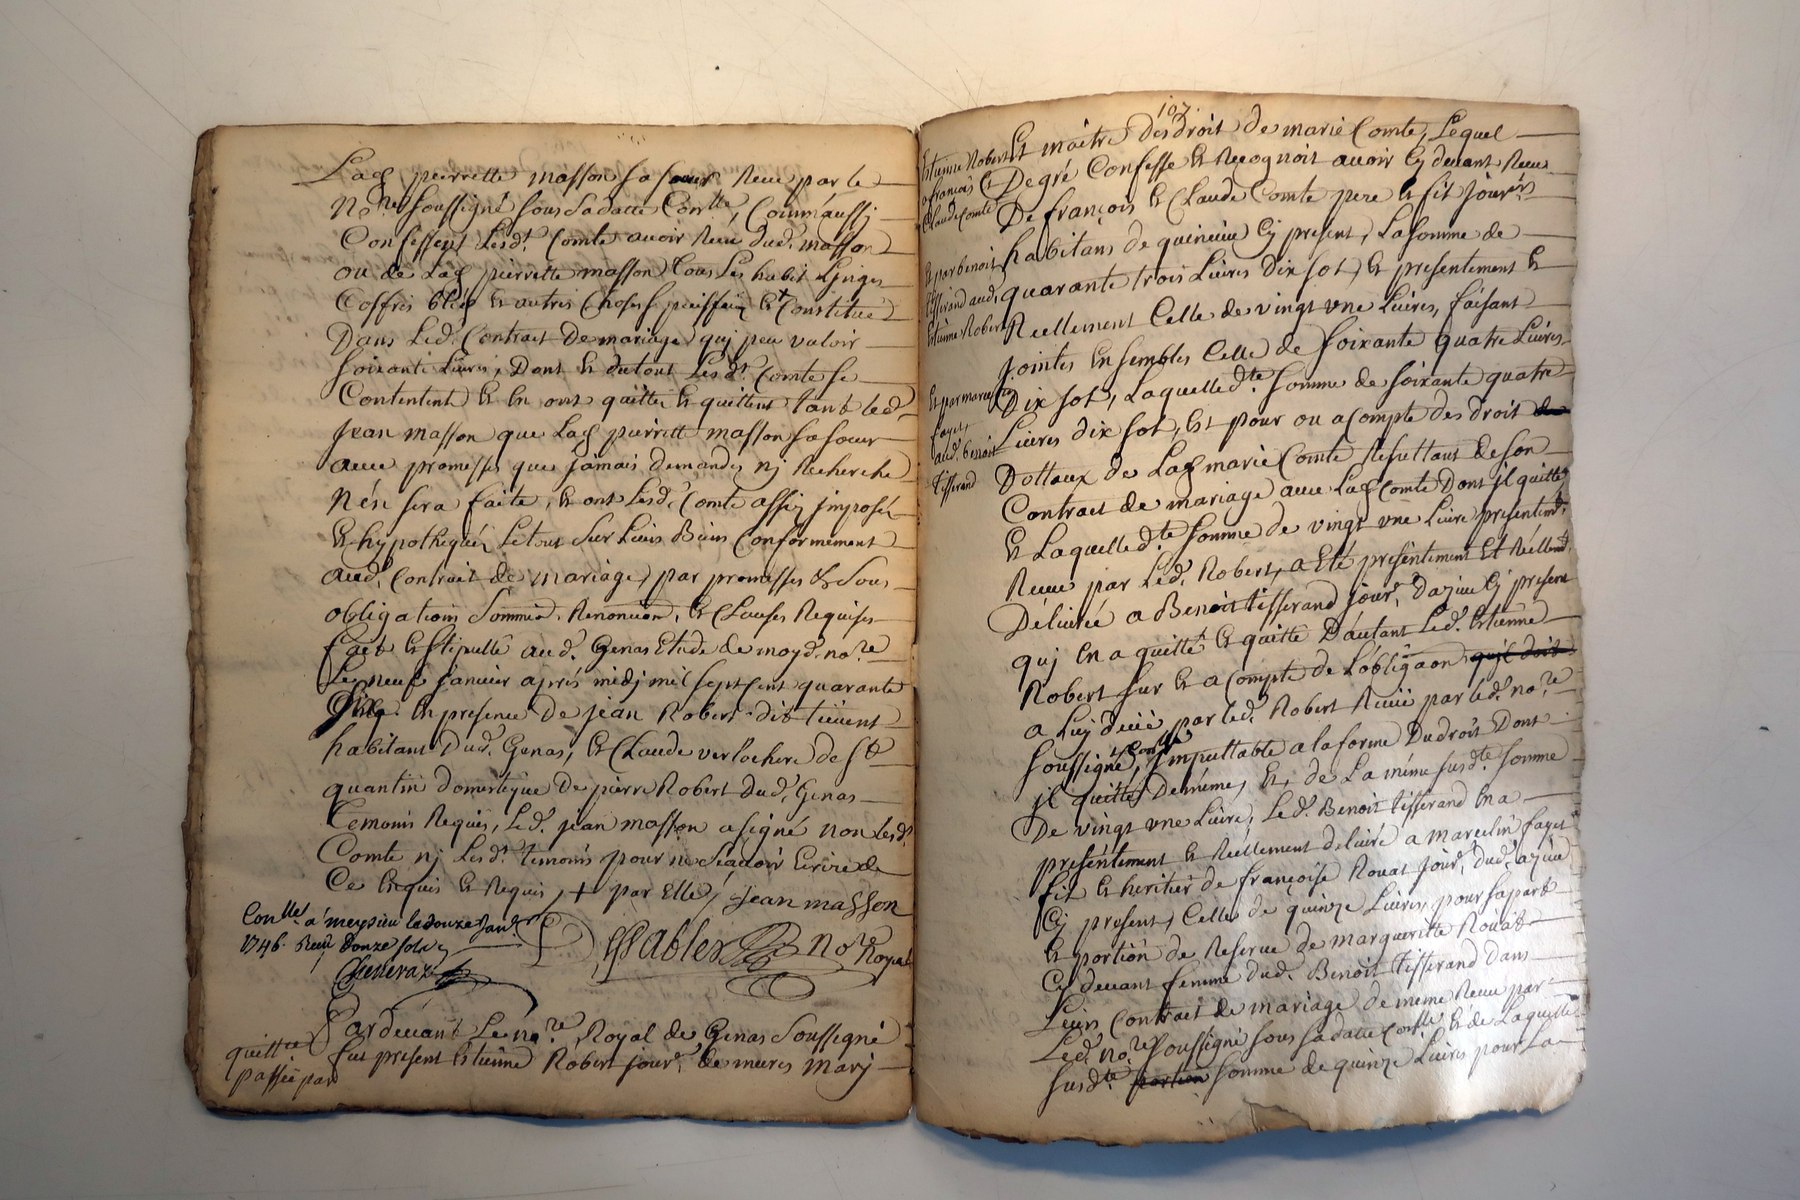 Lad. pierrette masson sa soeur Receu par le
No.re soussigné sous sa datte Con.llé, Comm'aussi
Confessent Lesd.t Comte avoir Receu dud. masson
ou de Lad. pierrette masson tous Les habit Linges
Coffres et autres Choses Constitué
Dans Led. Contract de mariage, qui peu valoir
soixante Livres, Dont et dutout Lesd.t Comte se
Contentent et en ont quitter et quittent tant led.
jean masson que Lad. pierrette masson sa soeur
avec promesses que jamais demandes nj Recherche
N'en sera faite, et ont Lesd. Comte assis imposée
et hypothequé Letout sur Leurs Biens Conformement
aud. Contract de mariage, par promesses et sous
obligations Renoncion, et Clauses Requises
fait et stipullé aud. Genas Etude de moyd. no.re
Le neuf janvier aprés midj mil sept cent quarante
Six. En presence de jean Robert dit
habitant dud. Genas, et Claude verlochere de St
quantin domestique de pierre Robert dud. Genas
Temoins Requis, Led. jean masson a signé non lesd.t
Comte nj Lesd.t temoins pour ne Scavoir Ecrire de
Ce Enquis et Requis, + par Elle, jean masson
Con.llé a meysieu le douze janv.r
1746. Receu douze sols
Cheneraz
Sablex no.re Royal
Pardevant Le no.re Royal de Genas soussigné
quittce
fut present Estienne Robert jour.r de mures marj
passée par
107.
Et maitre des droit de marie Comte, Lequel
Estienne Robert
a françois et
Claude Comte
Degré Confesse et Recognoit avoir Cy devant Receu
De françois et Claude Comte pere et fil jour.rs
habitans de quincieu Cy present, La somme de
Et par benoit
tisserand aud.
Estienne Robert
quarante trois Livres dix sol, et presentement et
Reellement Celle de vingt une Livres, faisant
jointes Ensembles Celle de soixante quatre Livres
Dix sol, Laquelle d.te somme de soixante quatre
Et par marcelin
fayet
aud. benoit
tisserand
Livres dix sol, Est pour ou a Compte des droit
Dottaux de Lad. marie Comte Resultans de son
Contract de mariage avec Lad. Comte Dont jl quitte
Et Laquelle d.te somme de vingt une Livre presentem.t
Receu par Led. Robert, a Eté presentement Et Réellem.t
Délivrée a Benoit tisserand jour.r Cy present
quj En a quitté et quitte D'autant Led. Estienne
Robert sur et a Compte de l'obligaon qu'il doit
a Luy deue par led. Robert Receue par led. no.re
soussigné, Con.llé, Imputtable a la forme Du droit Dont
jl quitte De méme, Et, de La méme susd.te somme
De vingt une Livre, Led. Benoit tisserand En a
presentement et Reellement delivré a marcelin fayet
fil et heritier de françoise Rouat jour.r dud.
Cy present, Celle de quinze Livres, pour sa part
et portion de Reserve de margueritte Rouat
Cy devant femme dud. Benoit tisserand dans
Leur Contract de mariage de méme Receu par
Led. no.re soussigné sous sa datte Con.llé et de Laquelle
susd.te portion somme de quinze Livres pour La